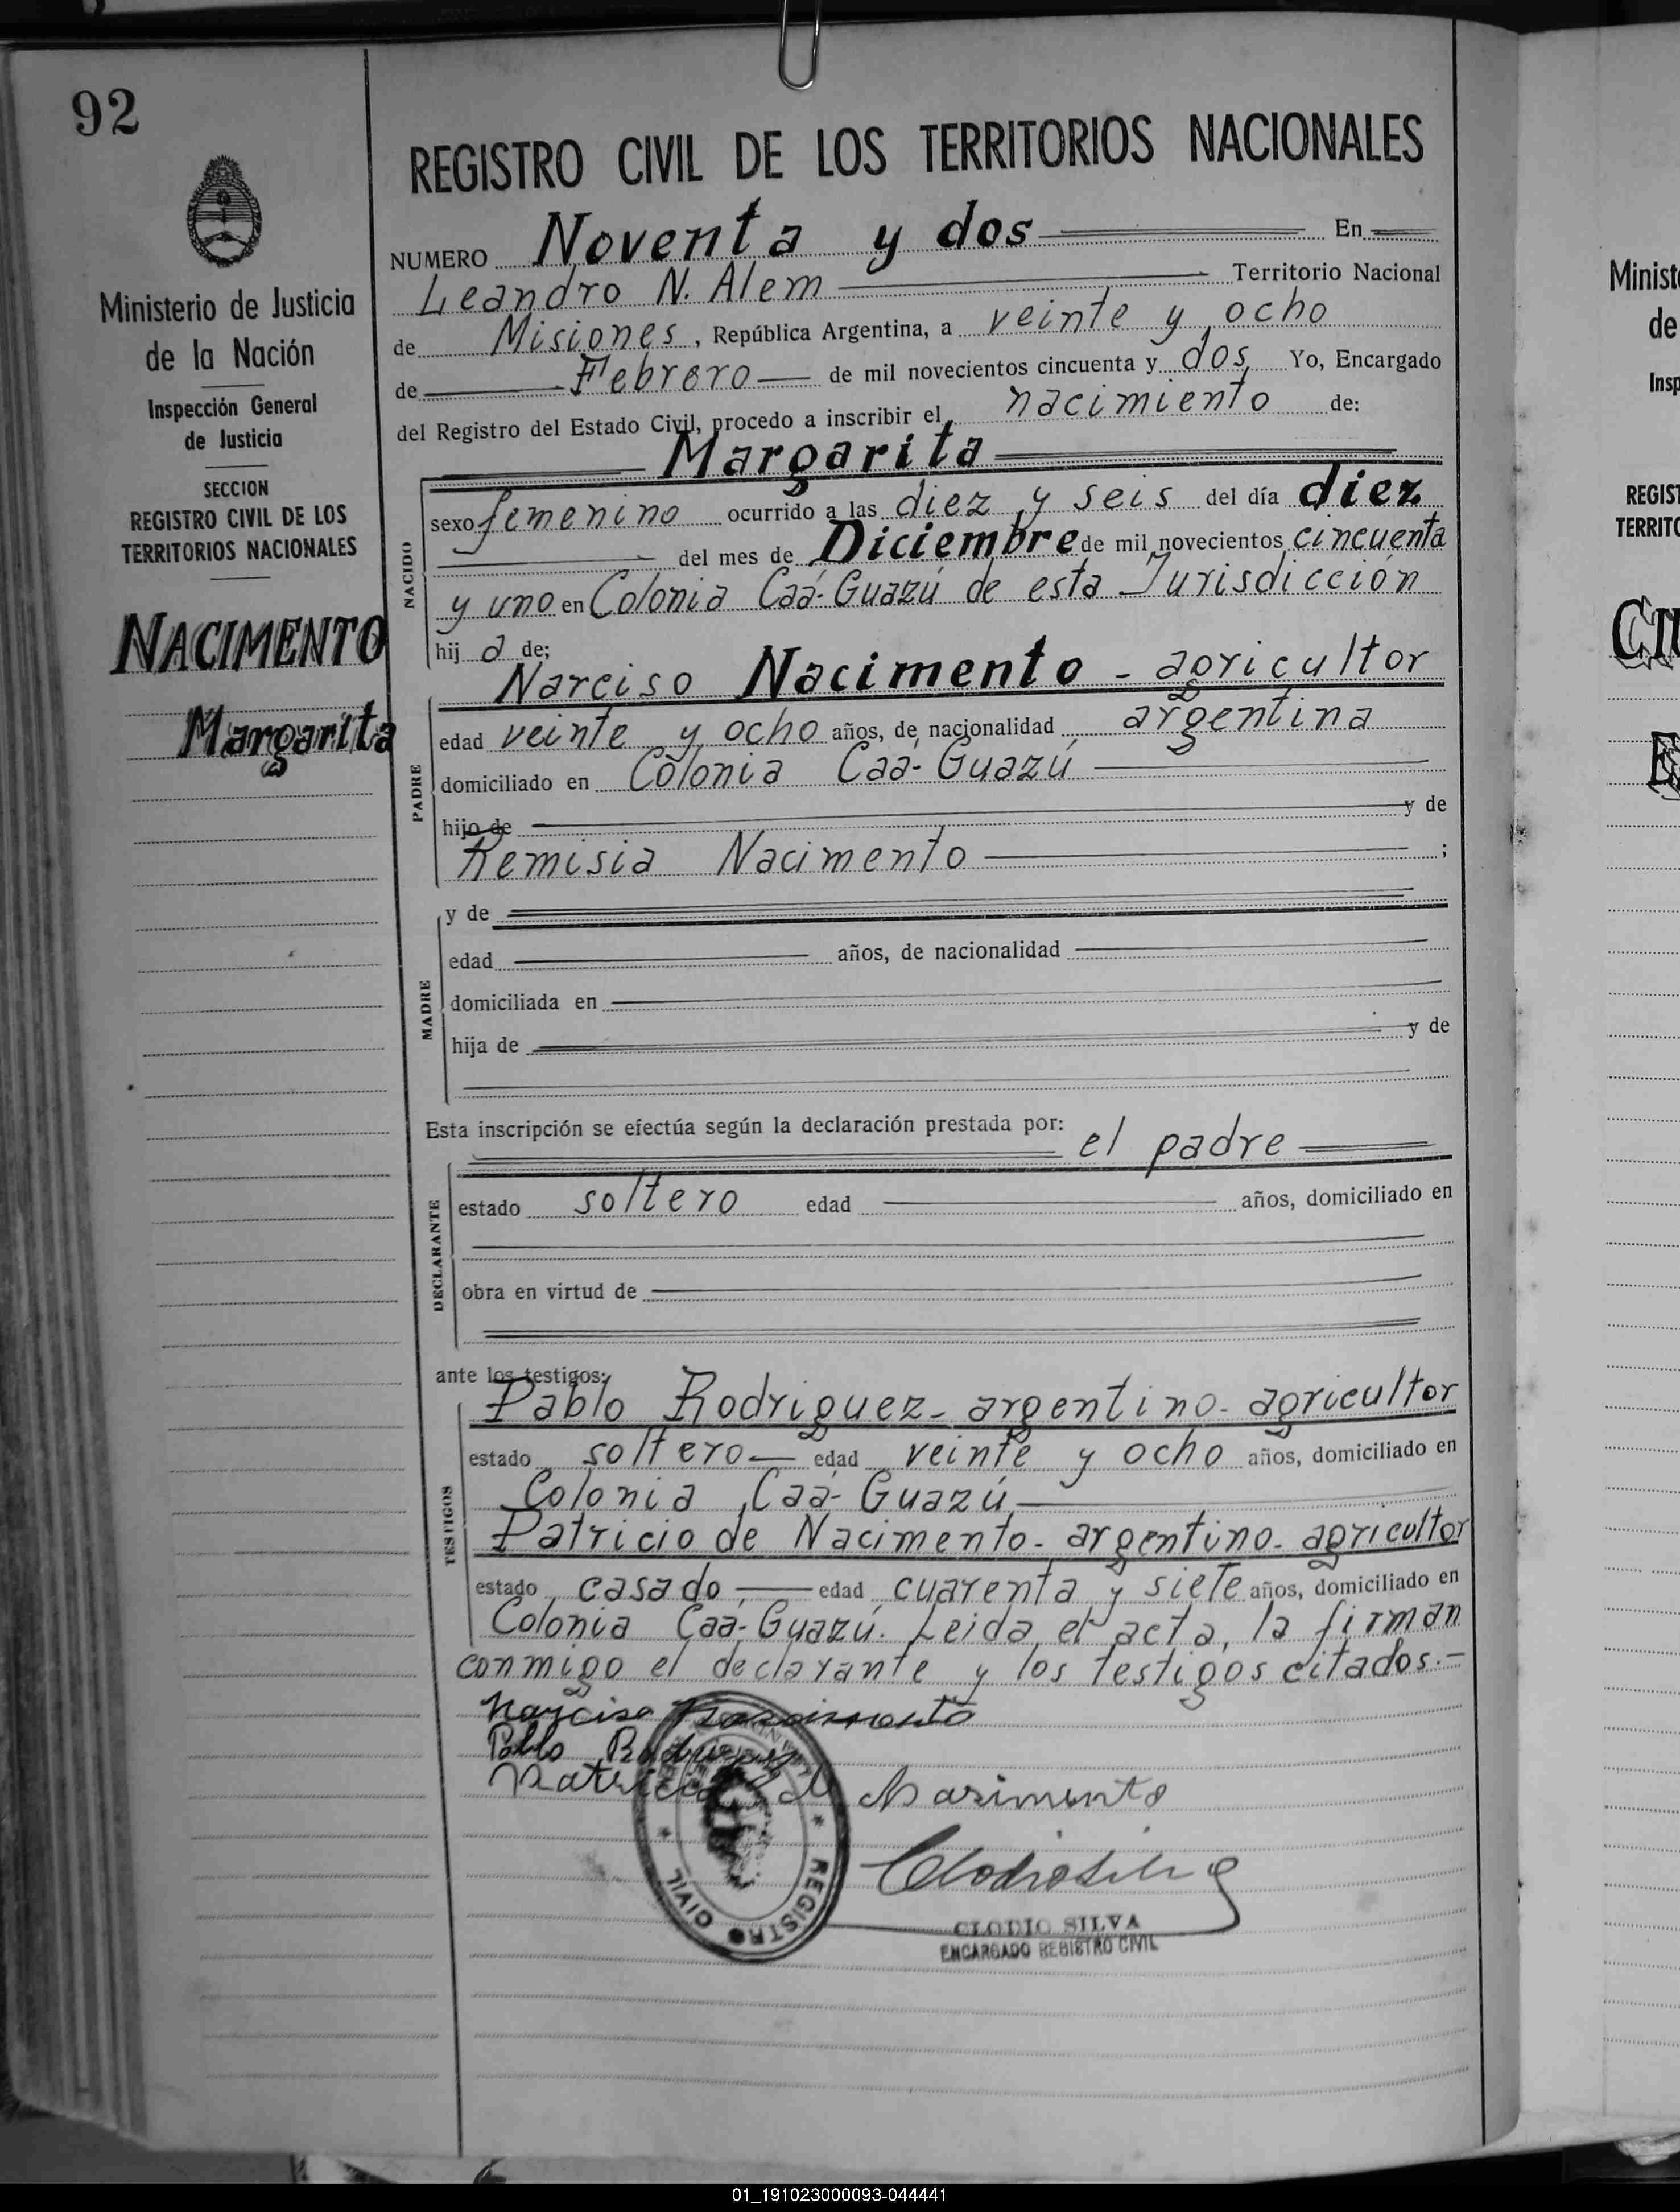 92
Ministerio de Justicia
de la Nación
Inspección General
de Justicia
SECCION
REGISTRO CIVIL DE LOS
TERRITORIOS NACIONALES
NACIMENTO
Margarita
REGISTRO CIVIL DE LOS TERRITORIOS NACIONALES
NUMERO Noventa y dos En
Leandro N. Alem Territorio Nacional
de Misiones, República Argentina, a veinte y ocho
de Febrero de mil novecientos cincuenta y dos Yo, Encargado
del Registro del Estado Civil, procedo a inscribir el nacimiento de:
Margarita
NACIDO
sexo femenino ocurrido a las diez y seis del día diez
del mes de Diciembre de mil novecientos cincuenta
y uno en Colonia Caá-Guazú de esta Jurisdicción
hij a de;
Narciso Nacimento - agricultor
PADRE
edad veinte y ocho años, de nacionalidad argentina
domiciliado en Colonia Caá-Guazú
hijo de y de
Remisia Nacimento ;
MADRE
y de
edad años, de nacionalidad
domiciliada en
hija de y de
Esta inscripción se efectúa según la declaración prestada por:
el padre
DECLARANTE
estado soltero edad años, domiciliado en
obra en virtud de
ante los testigos:
TESTIGOS
Pablo Rodriguez - argentino - agricultor
estado soltero edad veinte y ocho años, domiciliado en
Colonia Caá-Guazú
Patricio de Nacimento - argentino - agricultor
estado casado edad cuarenta y siete años, domiciliado en
Colonia Caá-Guazú. Leida el acta, la firman
conmigo el declarante y los testigos citados.-
Narciso Nascimento
Pablo Rodriguez
Patricio de Nasimento
REGISTRO CIVIL
Clodio Silva
CLODIO SILVA
ENCARGADO REGISTRO CIVIL
Minist
de
Insp
REGIST
TERRITO
01_191023000093-044441